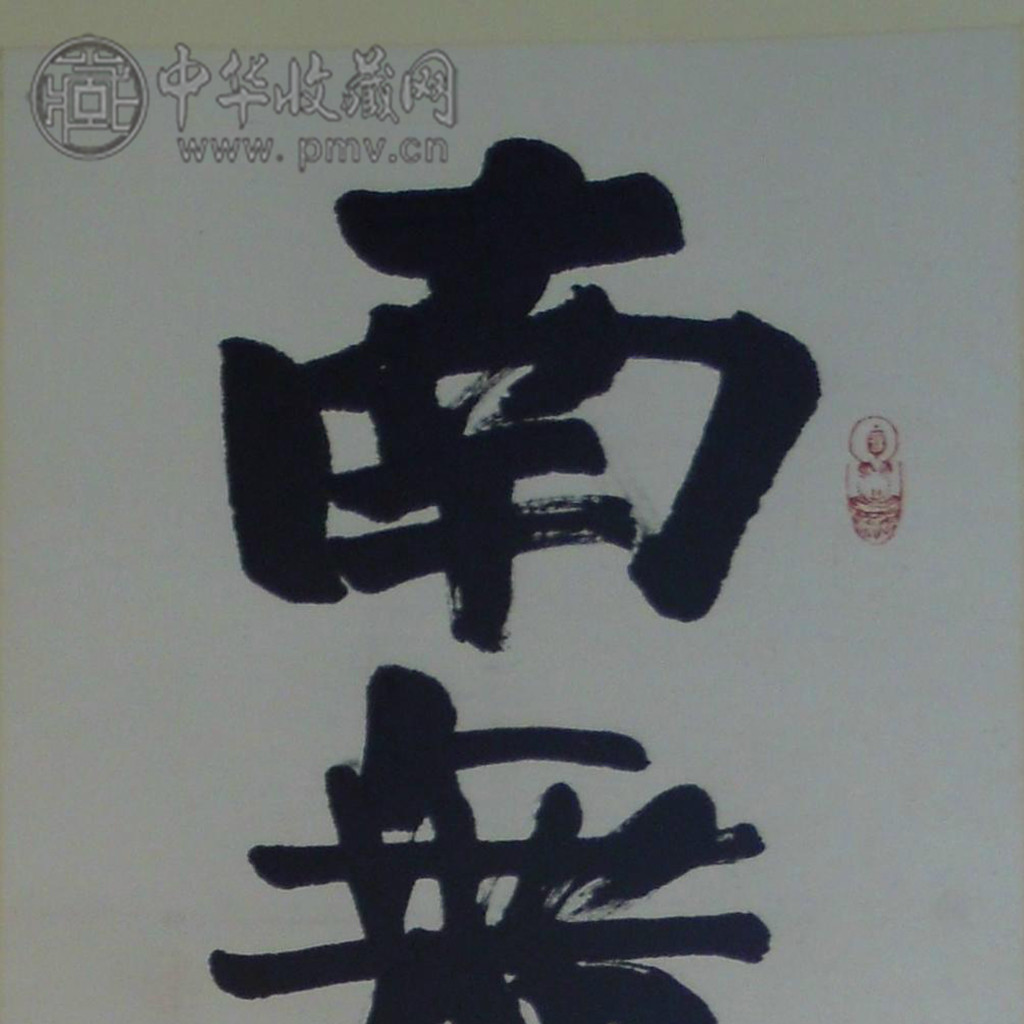 中华收藏网
www.pmv.cn
南
無